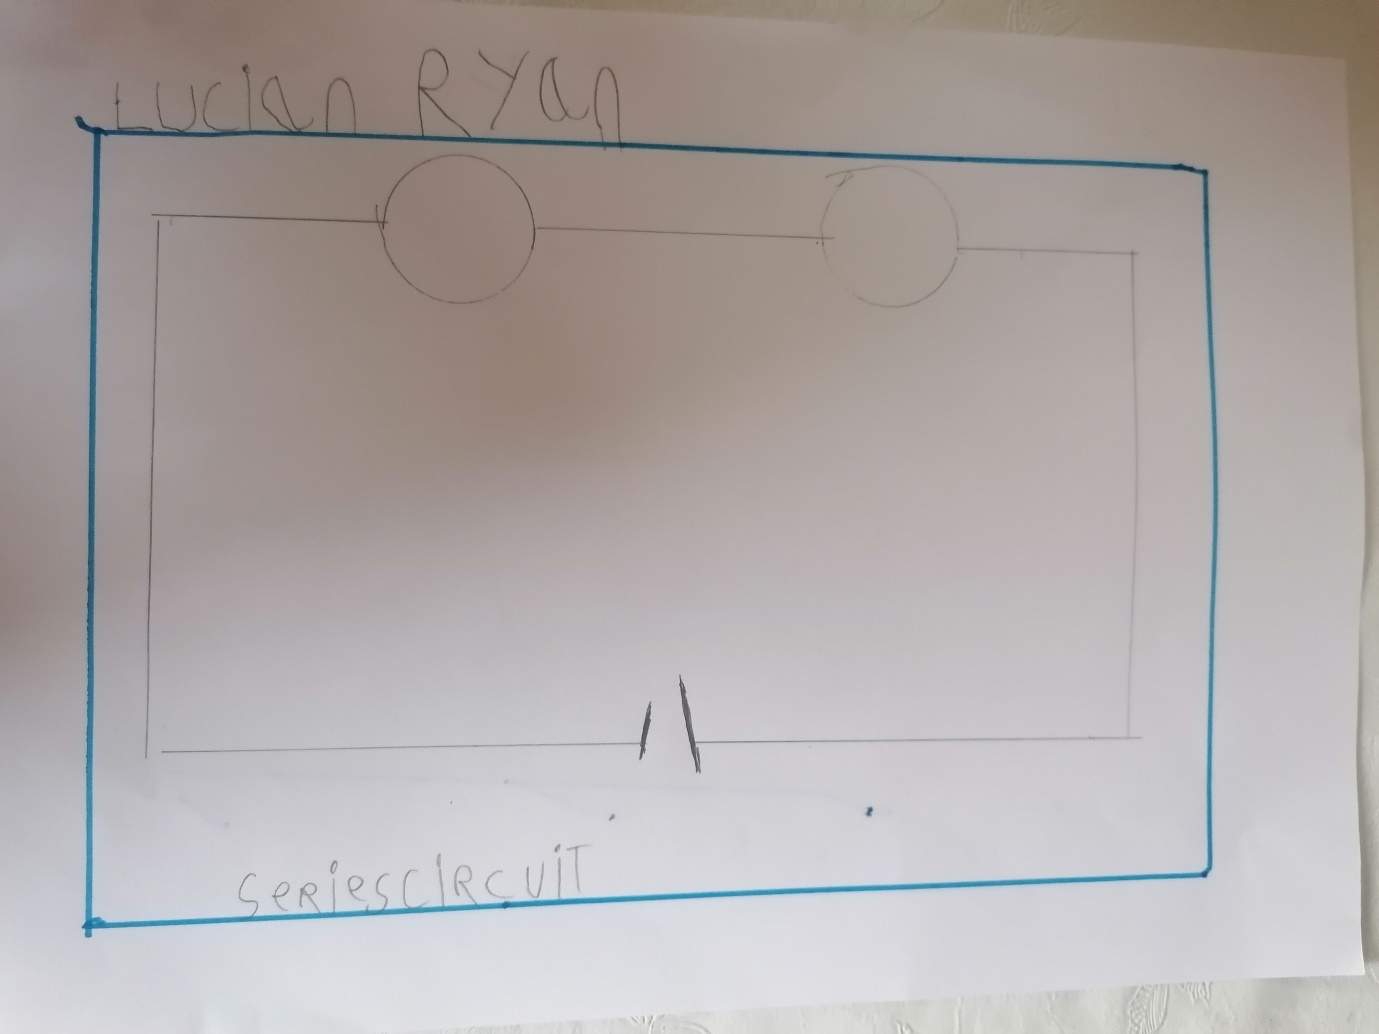 LUCIAN RYAN
SERIESCIRCUIT